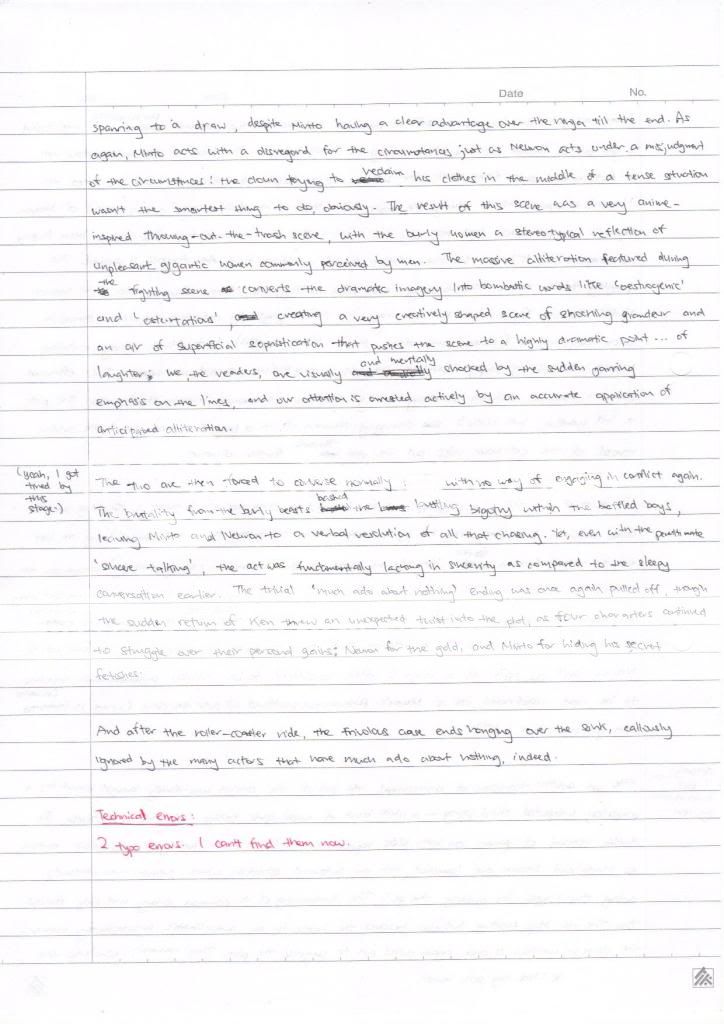 Date No.
sparring to a draw, despite Minto having a clear advantage over the ninja till the end. As
again, Minto acts with a disregard for the circumstances just as Neuron acts under a misjudgment
of the circumstances: the clown trying to reclaim his clothes in the middle of a tense situation
wasn't the smartest thing to do, obviously. The result of this scene was a very anime-
inspired throwing-out-the-trash scene, with the burly women a stereotypical reflection of
unpleasant gigantic women commonly perceived by men. The massive alliteration featured during
the fighting scene converts the dramatic imagery into bombastic words like 'oestrogenic'
and ' ', creating a very creatively shaped scene of shocking grandeur and
an air of superficial sophistication that pushes the scene to a highly dramatic point... of
laughter; we, the readers, are visually and mentally shocked by the sudden
emphasis on the lines, and our attention is arrested actively by an accurate application of
anticipated alliteration.
(yeah, I got
tired by
this
stage.)
The two are then forced to converse normally: with no way of engaging in conflict again.
The brutality from the burly beasts bashed the bigotry within the baffled boys,
leaving Minto and Neuron to a verbal resolution of all that chasing. Yet, even with the penultimate
'sincere talking', the act was fundamentally lacking in sincerity as compared to the sleepy
conversation earlier. The trivial 'much ado about nothing' ending was once again pulled off, though
the sudden return of Ken threw an unexpected twist into the plot, as four characters continued
to struggle over their personal gains; Neuron for the gold, and Minto for hiding his secret
fetishes.
And after the roller-coaster ride, the frivolous case ends hanging over the sink, callously
ignored by the many actors that have much ado about nothing, indeed.
Technical errors:
2 typo errors. I can't find them now.